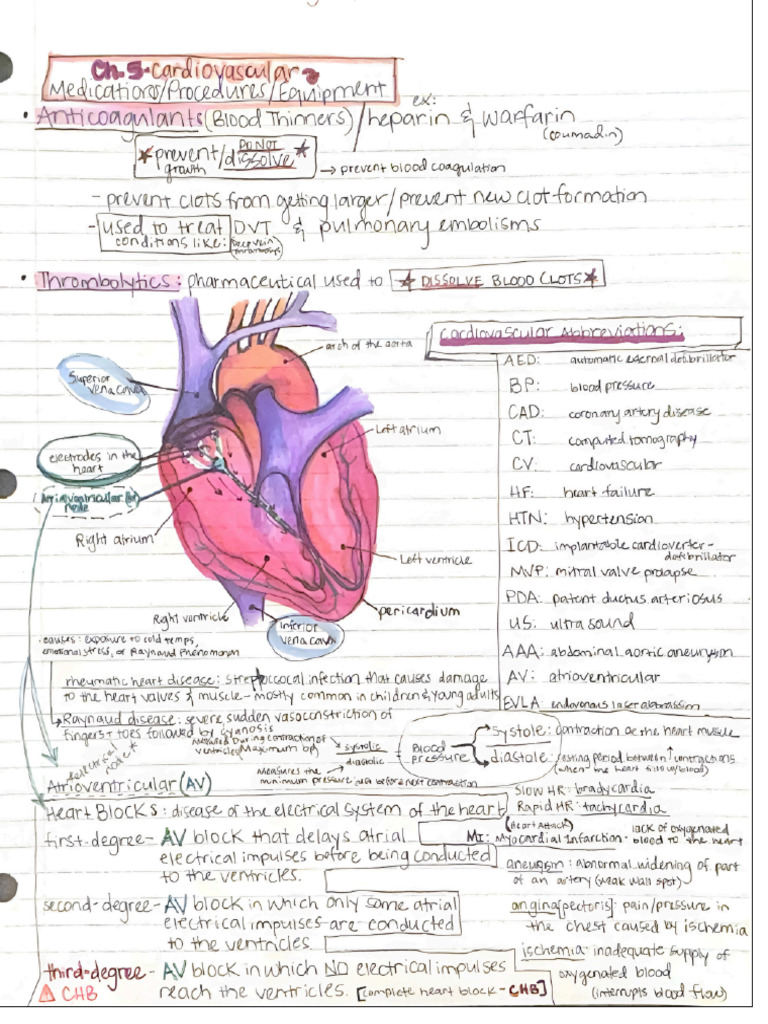 Ch. 5. Cardiovascular
Medications/Procedures/Equipment
• Anticoagulants (Blood Thinners) / ex: heparin & warfarin
(coumadin)
★ prevent growth / DO NOT dissolve ★ → prevent blood coagulation
- prevent clots from getting larger/prevent new clot formation
- used to treat conditions like: DVT (deep vein thrombosis) & pulmonary embolisms
• Thrombolytics: pharmaceutical used to ★ DISSOLVE BLOOD CLOTS ★
arch of the aorta
Superior
vena cava
Left atrium
electrodes in the
heart
Atrioventricular
node
Right atrium
Left ventricle
Right ventricle
pericardium
inferior
vena cava
Cardiovascular Abbreviations:
AED: automatic external defibrillator
BP: blood pressure
CAD: coronary artery disease
CT: computed tomography
CV: cardiovascular
HF: heart failure
HTN: hypertension
ICD: implantable cardioverter-
defibrillator
MVP: mitral valve prolapse
PDA: patent ductus arteriosus
US: ultra sound
AAA: abdominal aortic aneurysm
AV: atrioventricular
EVLA: endovenous laser
• causes: exposure to cold temps,
emotional stress, or Raynaud Phenomonm
rheumatic heart disease: streptoccocal infection that causes damage
to the heart valves & muscle - mostly common in children & young adults
Raynaud disease: severe sudden vasoconstriction of
fingers + toes followed by cyanosis
Measured During contraction of
ventricles/Maximum bp
systolic
diastolic
Measures the
minimum pressure just before next contraction
Blood
pressure
Systole: contraction of the heart muscle
diastole: resting period between contractions
(when the heart fills w/blood)
*electrical node*
Atrioventricular (AV)
Heart Blocks: disease of the electrical system of the heart
first-degree- AV block that delays atrial
electrical impulses before being conducted
to the ventricles.
second-degree- AV block in which only some atrial
electrical impulses are conducted
to the ventricles.
third-degree - AV block in which NO electrical impulses
CHB reach the ventricles. [complete heart block - CHB]
Slow HR: bradycardia
Rapid HR: tachycardia
(Heart Attack)
MI: Myocardial Infarction - lack of oxygenated
blood to the heart
aneurism: abnormal widening of part
of an artery (weak wall spot)
angina [pectoris]: pain/pressure in
the chest caused by ischemia
ischemia: inadequate supply of
oxygenated blood
(interrupts blood flow)